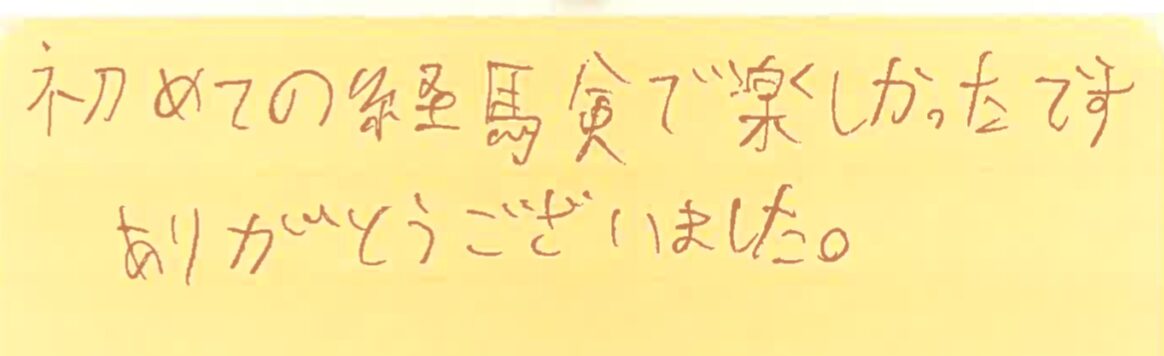 初めての経験で楽しかったです
ありがとうございました。